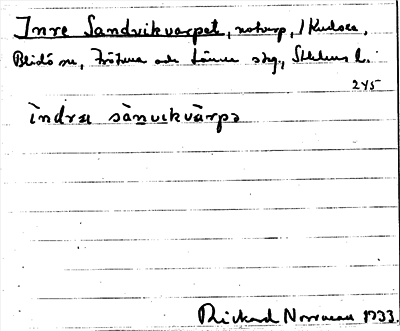 Inre Sandvikvarpet, notvarp, i Kudoxa,
Blidö sn, Frötuna och Länna skg., Sthlms l.
245
ìndrɛ sànvɩkvàrpə
Rickard Norrman 1933.